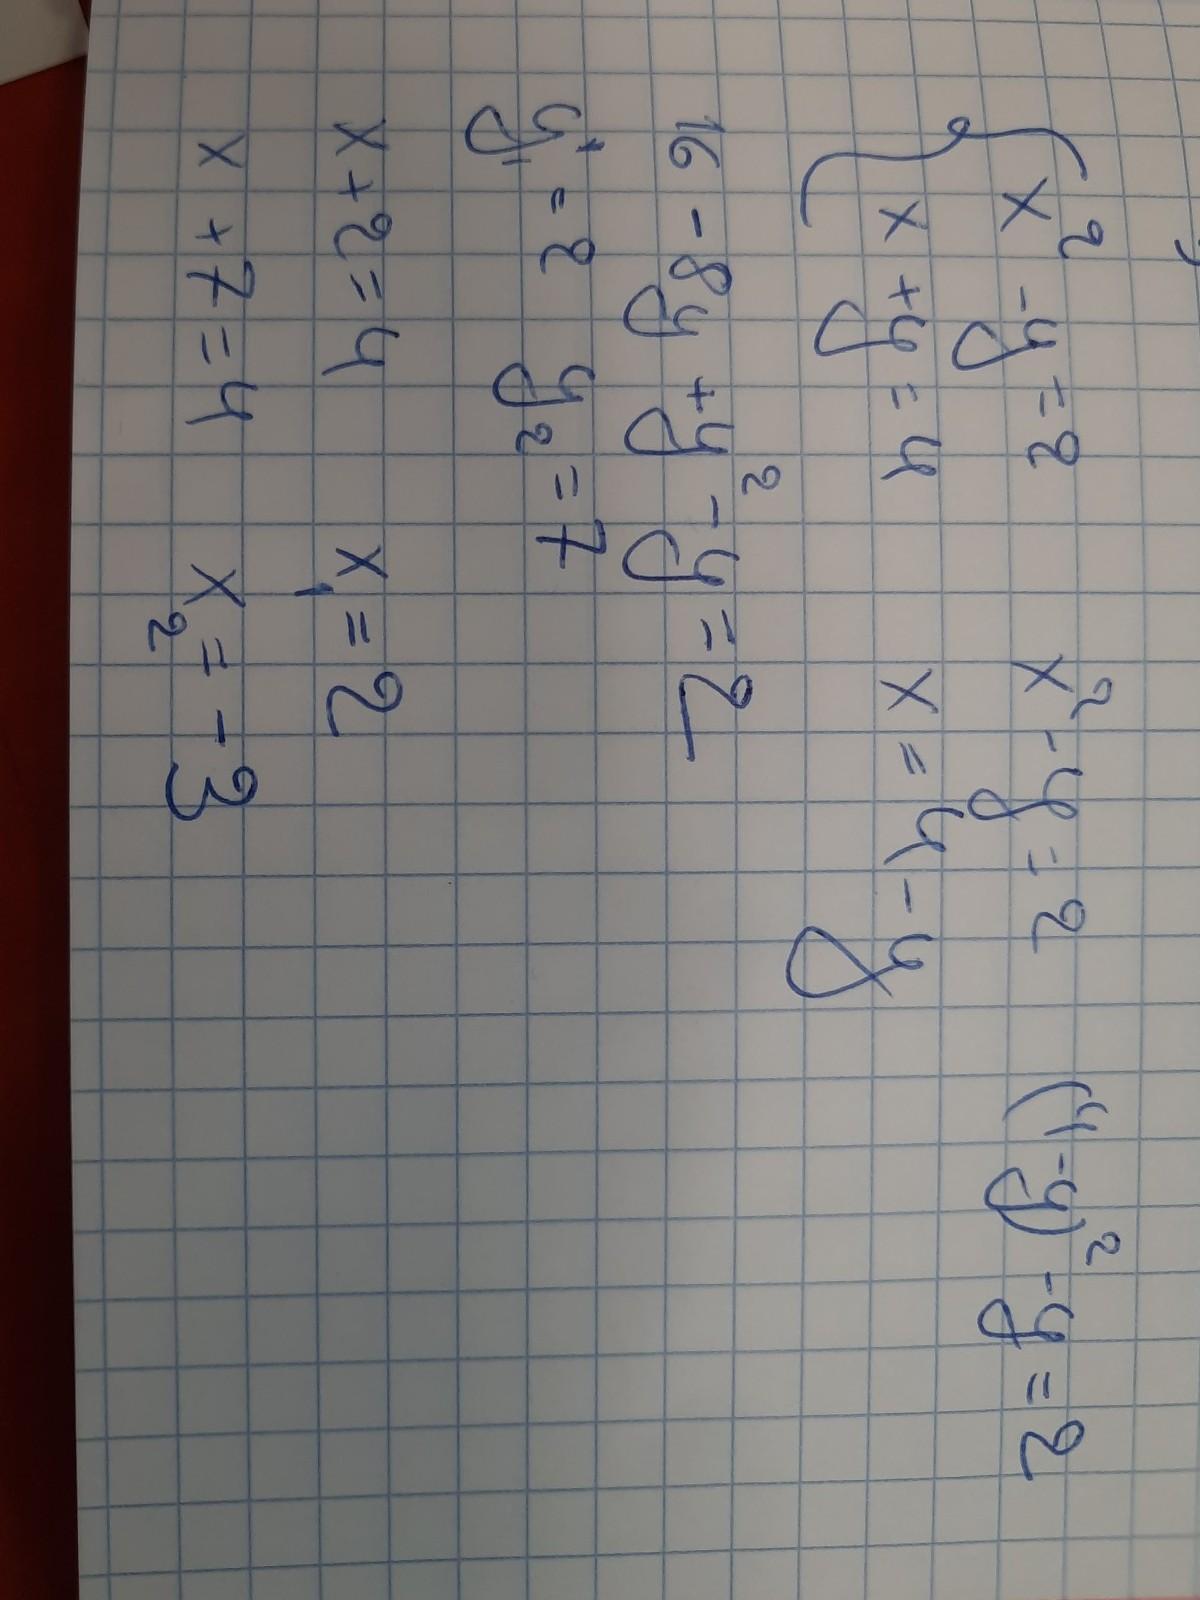 { x² - y = 2 x² - y = 2 (4 - y)² - y = 2
x + y = 4 x = 4 - y
16 - 8y + y² - y = 2
y₁ = 2 y₂ = 7
x + 2 = 4 x₁ = 2
x + 7 = 4 x₂ = - 3